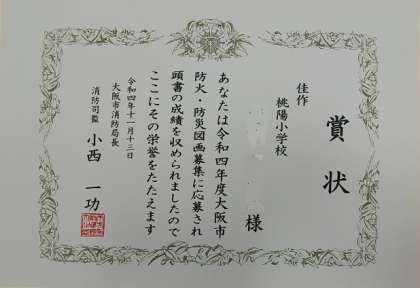 賞状
佳作
桃陽小学校
様
あなたは令和四年度大阪市
防火・防災図画募集に応募され
頭書の成績を収められましたので
ここにその栄誉をたたえます
令和四年十一月十三日
大阪市消防局長
消防司監 小西一功